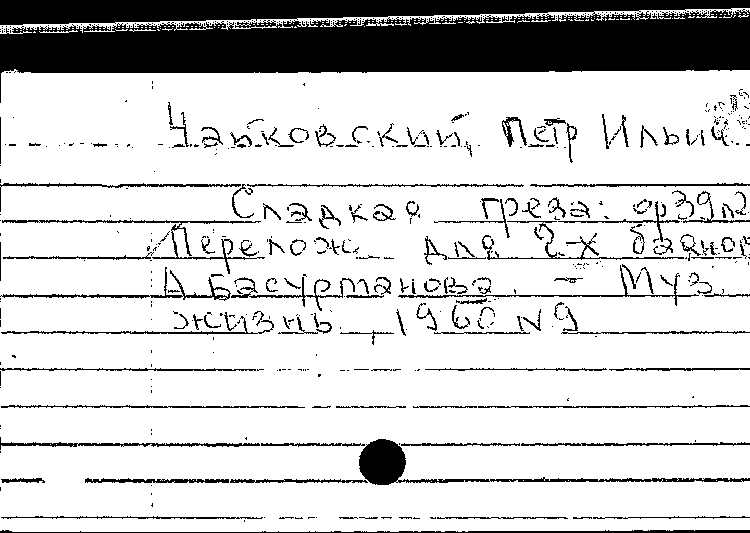 Чайковский, Петр Ильич
Сладкая греза: ор39 n2
Перелож для 2-х баянов
А. Басурманова. - Муз.
жизнь, 1960 N9